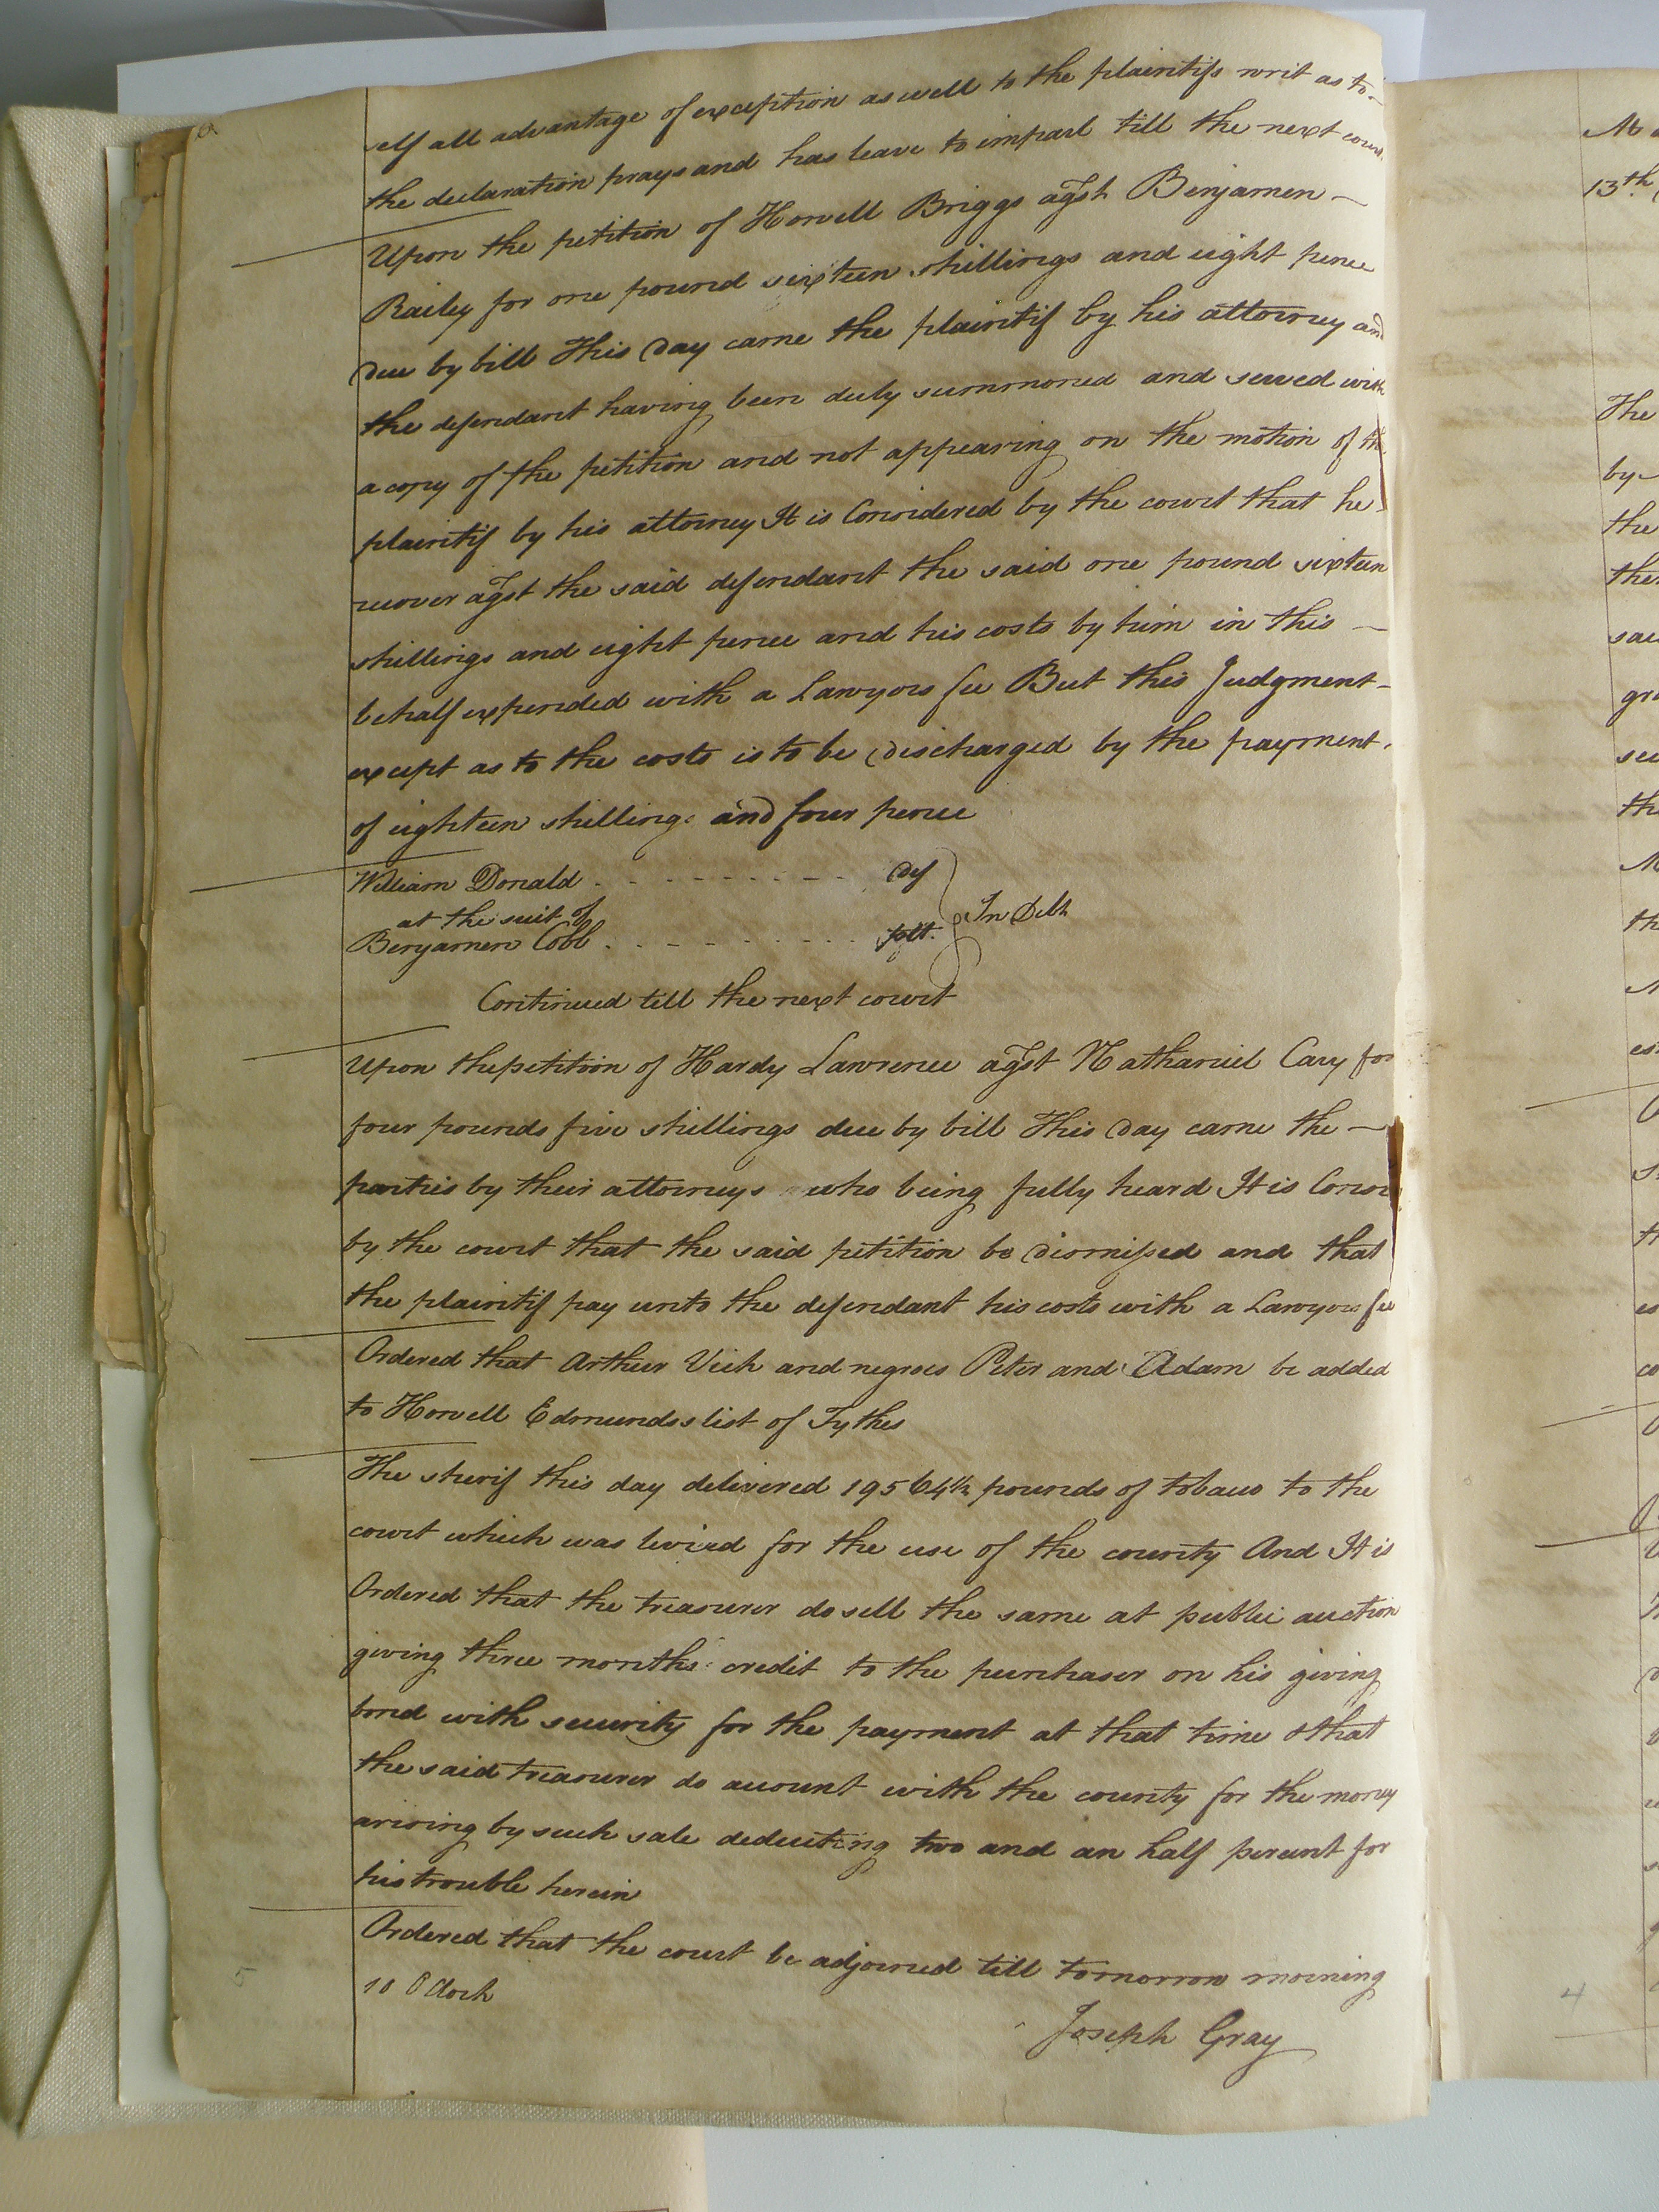 self all advantage of exception as well to the plaintifs writ as to
the declaration prays and has leave to imparl till the next court
Upon the petition of Howell Briggs agst Benjamen
Bailey for one pound sixteen shillings and eight pence
due by bill This day came the plaintif by his attorney and
the defendant having been duly summoned and served with
a copy of the petition and not appearing on the motion of the
plaintif by his attorney It is Considered by the court that he
recover agst the said defendant the said one pound sixteen
shillings and eight pence and his costs by him in this
behalf expended with a Lawyors fee But this Judgment
except as to the costs is to be discharged by the payment
of eighteen shillings and four pence
William Donald def
at the suit of In Debt
Benjamen Cobb plt.
Continued till the next court
Upon the petition of Hardy Lawrence agst Nathaniel Cary for
four pounds five shillings due by bill This day came the
parties by their attorneys who being fully heard It is Consi
by the court that the said petition be dismissed and that
the plaintif pay unto the defendant his costs with a Lawyors fee
Ordered that Arthur Vick and negroes Peter and Adam be added
to Howell Edmunds list of Tythes
The sherif this day delivered 19564 pounds of tobacco to the
court which was levied for the use of the county And It is
Ordered that the treasurer do sell the same at public auction
giving three months credit to the purchaser on his giving
bond with security for the payment at that time & that
the said treasurer do account with the county for the money
arising by such sale deducting two and an half percent for
his trouble herein
Ordered that the court be adjourned till tomorrow morning
10 OClock
Joseph Gray
5
13th
The
by
the
4